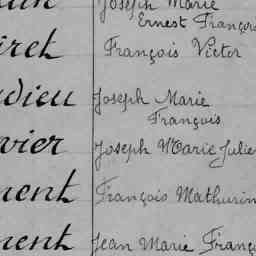 Joseph Marie
Ernest François
François Victor
Joseph Marie
François
vier Joseph Marie Julien
ment François Mathurin
ment Jean Marie Franç